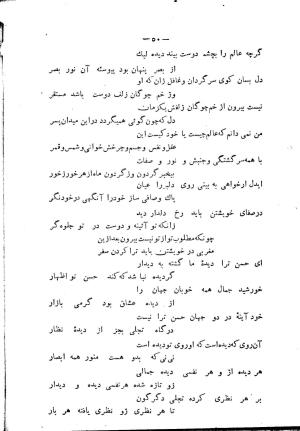 — ۵۰ —
گرچه عالم را بچشم دوست بیند دیده لیك
از بصر پنهان بود پیوسته آن نور بصر
دل بسان کوی سرگردان وغافل زان که او
وز خم چوگان زلف دوست باشد مستقر
نیست بیرون از خم چوگان زلفش یکزمان
دل که چون گوئی همیگردد در این میدان بسر
من نمی دانم که عالم چیست یا خود کیست این
عقل و نفس و جسم و چرخش خوانی و شمس و قمر
با همه سرگشتگی و جنبش و نور و صفات
بیخبر گردون وز گردون ماه از هر خور ز خور
ایدل ار خواهی به بینی روی دلبر را عیان
پاك وصافی ساز خود را آنگهی درخودنگر
درصفای خویشتن باید رخ دلدار دید
زانکه تو آئینه و دوست در تو جلوه گر
چونکه مطلوب تو از تو نیست بیرون بعد ازین
مغربی در خویشتن باید ترا کردن سفر
ای حسن ترا دیدهٔ ما گشته به دیدار
گردیده نبا شد که کند حسن تو اظهار
خورشید جمال همه خوبان جهان را
از دیده عشاق بود گرمی بازار
خود آینهٔ در دو جهان حسن ترا نیست
درگاه تجلی بجز از دیدهٔ نظار
آن روی که دیده است که او روی تو دیده است
نی نی که بدو هست منور همه ابصار
هم دیده از و هر نفسی دیده جمالی
زو تازه شده هر نفسی دیده و دیدار
بر هر نظری کرده تجلی دگرگون
هر نظری زو نظری یافته هر بار